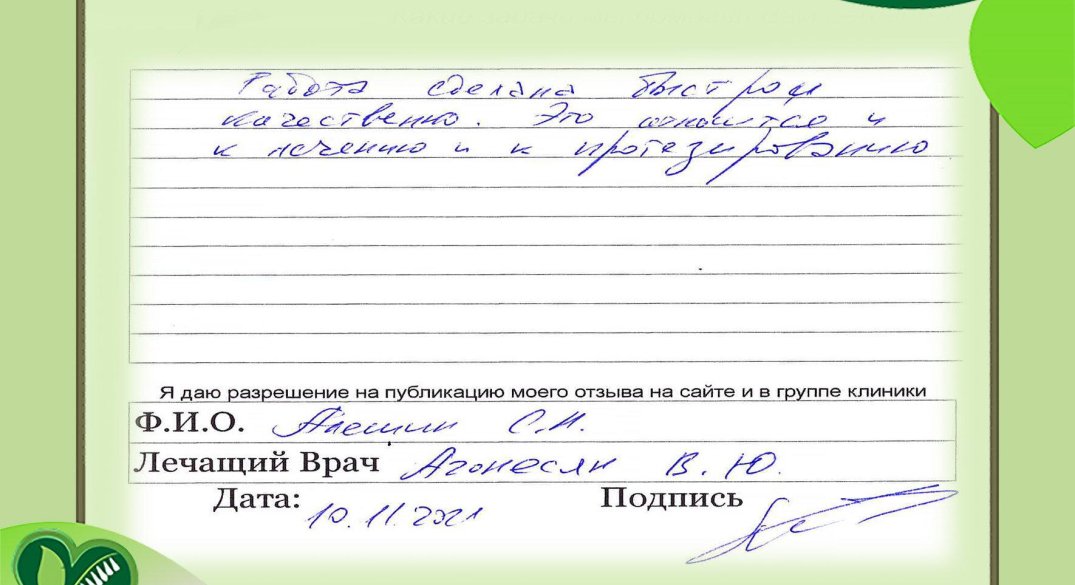 Работа сделана быстро и
качественно. Это относится и
к лечению и к протезированию
Я даю разрешение на публикацию моего отзыва на сайте и в группе клиники
Ф.И.О. Алешин С.И.
Лечащий Врач Агонесян В. Ю.
Дата: 10.11.2021 Подпись